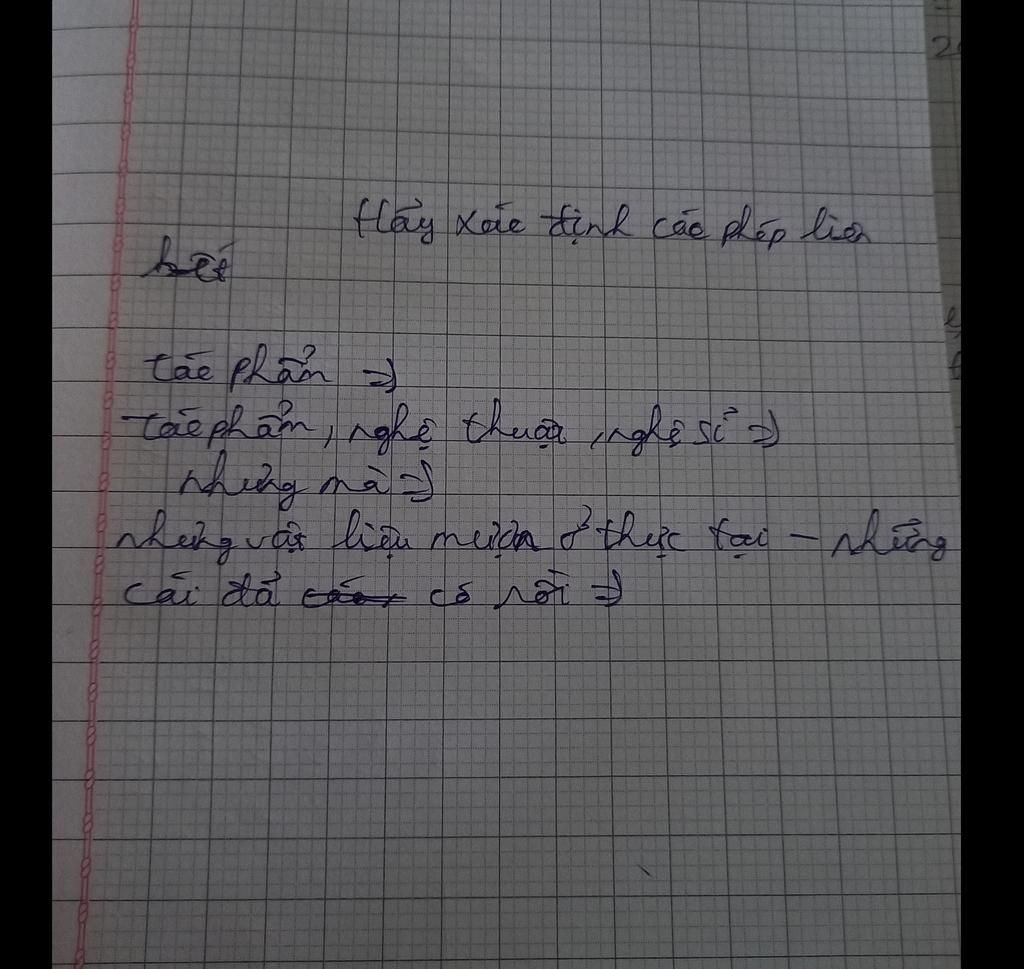 Hảy xác định các phép liên
kết
tác phẩm =>
tác phẩm, nghệ thuật, nghệ sỉ =>
nhưng mà =>
những vật liệu mượn ở thực tại - những
cái đả có rồi =>